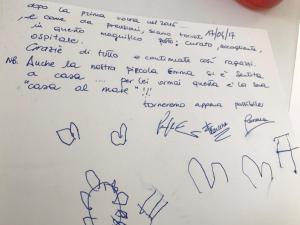 dopo la prima volta nel 2015
e come da previsioni, siamo tornati 17/06/17
in questo magnifico posto, curato, accogliente,
ospitale.
Grazie di tutto e continuate così ragazzi.
NB. Anche la nostra piccola Emma si è sentita
a casa .... per lei ormai questa è la sua
"casa al mare"!!!
torneremo appena possibile